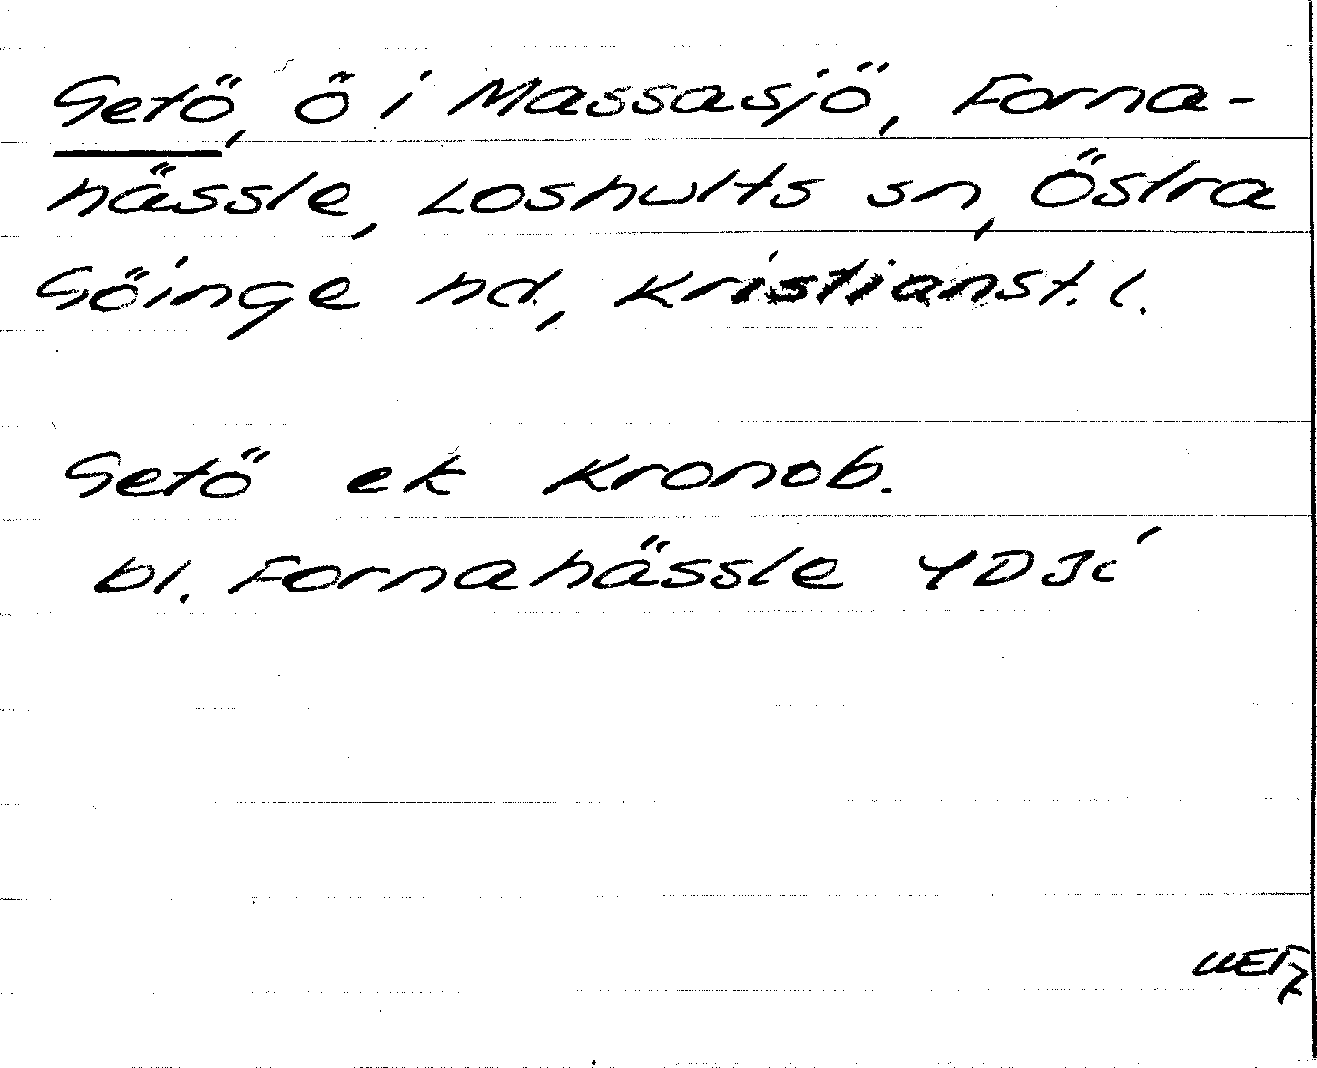 Getö, ö i Massasjö, Forna-
hässle, Loshults sn, Östra
Göinge hd, Kristianst. l.
Getö ek Kronob.
bl. Fornahässle 4D3c